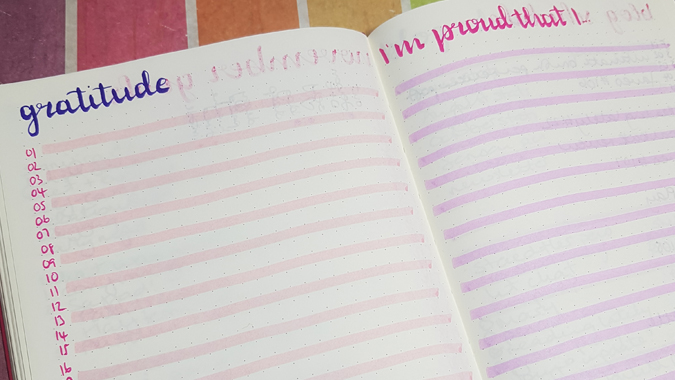 gratitude
01
02
03
04
05
06
07
08
09
10
11
12
13
14
15
16
i'm proud that I..